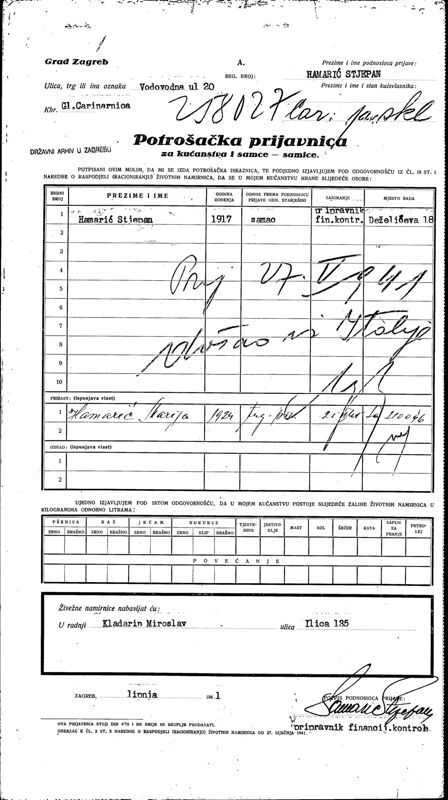 Grad Zagreb
A.
Prezime i ime podnosioca prijave:
REG. BROJ:
HAMARIĆ STJEPAN
Ulica, trg ili ina oznaka Vodovodna ul 20
Prezime i ime i stan kućevlasnika:
Kbr. Gl.Carinarnica
258027
DRŽAVNI ARHIV U ZAGREBU
Potrošačka prijavnica
za kućanstva i samce — samice.
POTPISANI OVIM MOLIM, DA MI SE IZDA POTROŠAČKA ISKAZNICA, TE PODJEDNO IZJAVLJUJEM POD ODGOVORNOŠĆU IZ ČL. 18 ST. 1
NAREDBE O RASPODJELI (RACIONIRANJU) ŽIVOTNIH NAMIRNICA, DA SE U MOJEM KUĆANSTVU HRANE SLIJEDEĆE OSOBE:
REDNI BROJ PREZIME I IME GODINA ROĐENJA ODNOS PREMA PODNOSIOCU PRIJAVE ODN. STARJEŠINI ZANIMANJE MJESTO RADA
1 Hamarić Stjepan 1917 samac pripravnik fin.kontr. Deželićeva 18
2
3
4
5
6
7
8
9
10
27. V 1941
Italije
PRIRAST: (ispunjava vlast)
1 Hamarić Marija 1924
2
OTPAD: (ispunjava vlast)
1
2
UJEDNO IZJAVLJUJEM POD ISTOM ODGOVORNOŠĆU, DA U MOJEM KUĆANSTVU POSTOJE SLIJEDEĆE ZALIHE ŽIVOTNIH NAMIRNICA U
KILOGRAMIMA ODNOSNO LITRAMA:
PŠENICA RAŽ JEČAM KUKURUZ TJESTENINE JESTIVO ULJE MAST SOL ŠEĆER KAVA SAPUN ZA PRANJE PETROLEJ
ZRNO BRAŠNO ZRNO BRAŠNO ZRNO BRAŠNO ZRNO KLIP BRAŠNO
POVEĆANJE
Živežne namirnice nabavljat ću:
U radnji Kladarin Miroslav ulica Ilica 135
ZAGREB, lipnja 1941
POTPIS PODNOSIOCA PRIJAVE:
Hamarić Stjepan
pripravnik financij.kontrob.
OVA PRIJAVNICA STOJI DIN 0·75 I NE SMIJE SE SKUPLJE PRODAVATI.
OBRAZAC K ČL. 2 ST. 2 NAREDBE O RASPODJELI (RACIONIRANJU) ŽIVOTNIH NAMIRNICA OD 27. SIJEČNJA 1941.